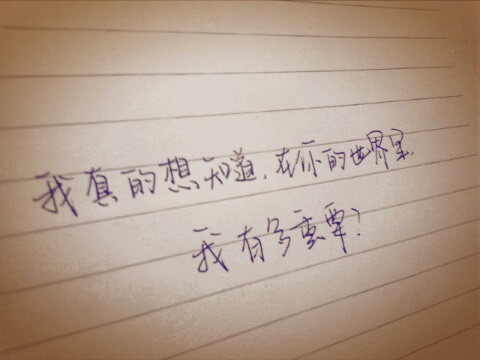 我真的想知道,在你的世界里.
我有多重要?